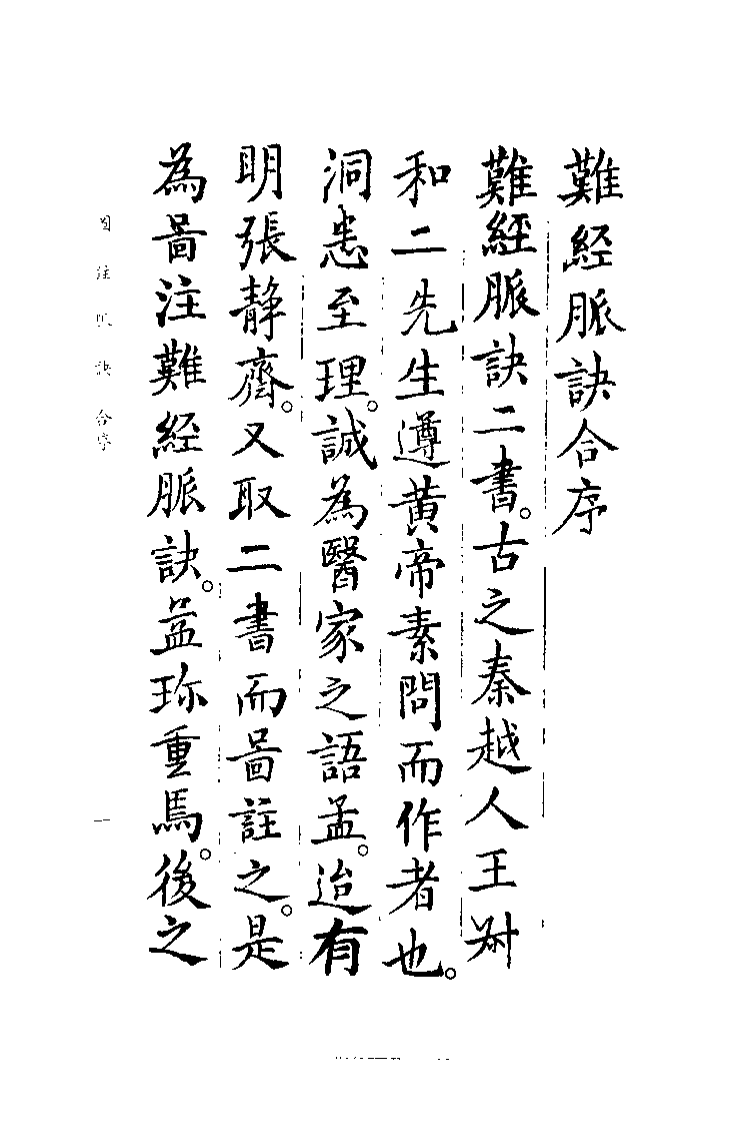 難経脈訣合序
難經脈訣二書。古之秦越人王叔
和二先生遵黄帝素問而作者也。
洞悉至理。誠為醫家之語孟。迨有
明張静齋。又取二書而啚註之。是
為啚注難経脈訣。益珎重焉。後之
图注脈訣 合序
一